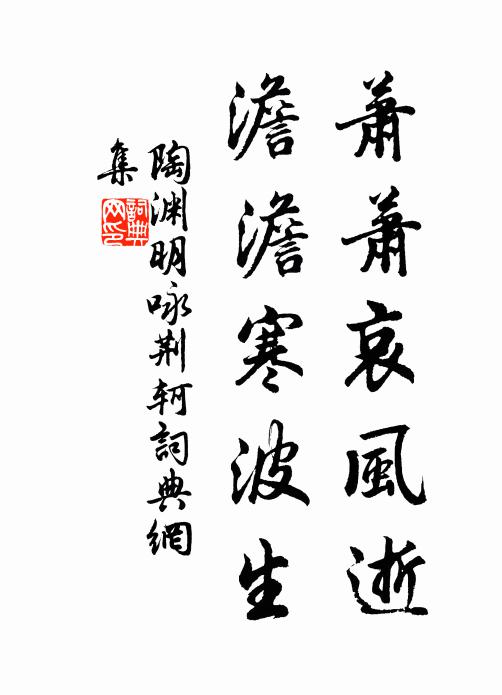 蕭蕭哀風逝
澹澹寒波生
陶渊明咏荆轲詞典網
集
詞典
网印